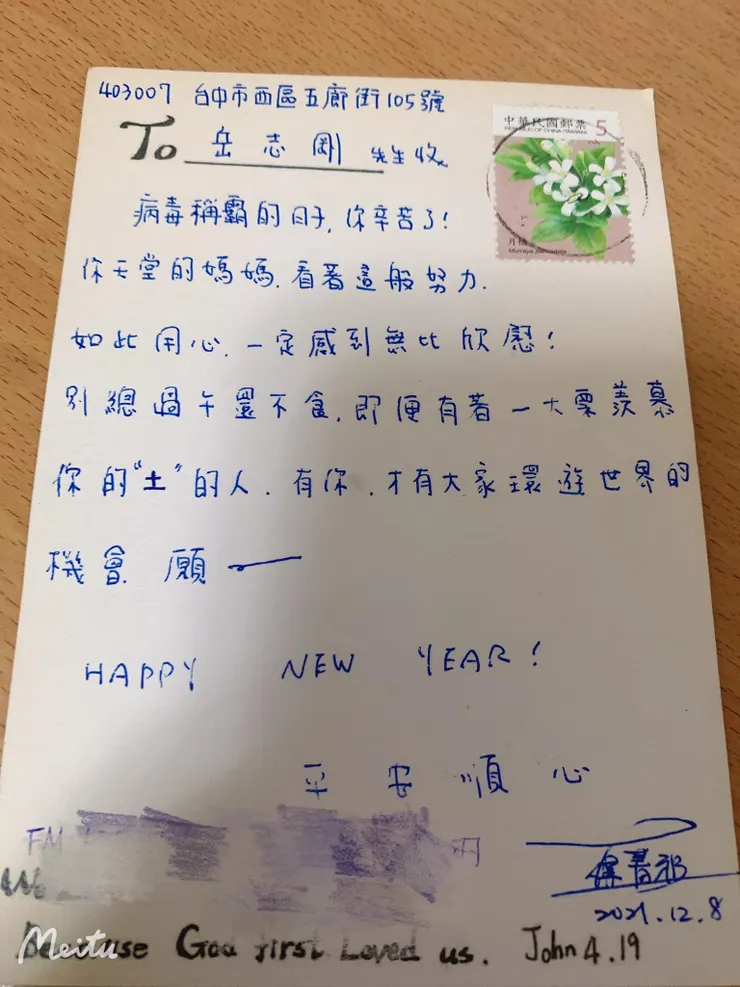 403007 台中市西區五廊街105號
To 岳志剛 先生收
中華民國郵票 5
REPUBLIC OF CHINA (TAIWAN)
病毒稱霸的日子, 你辛苦了!
你天堂的媽媽, 看著這般努力.
如此用心, 一定感到無比欣慰!
別總過午還不食, 即便有著一大票羨慕
你的"土"的人. 有你, 才有大家環遊世界的
機會. 願
HAPPY NEW YEAR!
平安順心
FM
2021.12.8
Because God first Loved us. John 4.19
Meitu